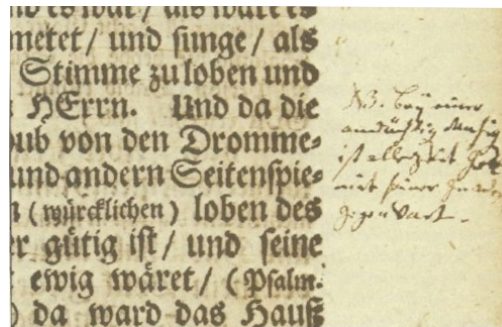 es war/ als wäre es
metet/ und sunge/ als
Stimme zu loben und
HErrn. Und da die
ub von den Dromme⸗
und andern Seitenspie⸗
(würcklichen) loben des
er gütig ist/ und seine
ewig wäret/ (Psalm.
) da ward das Hauß
NB. Bey einer
andächtig Musiq
ist allezeit Gott
mit seiner Gnaden
Gegenwart.